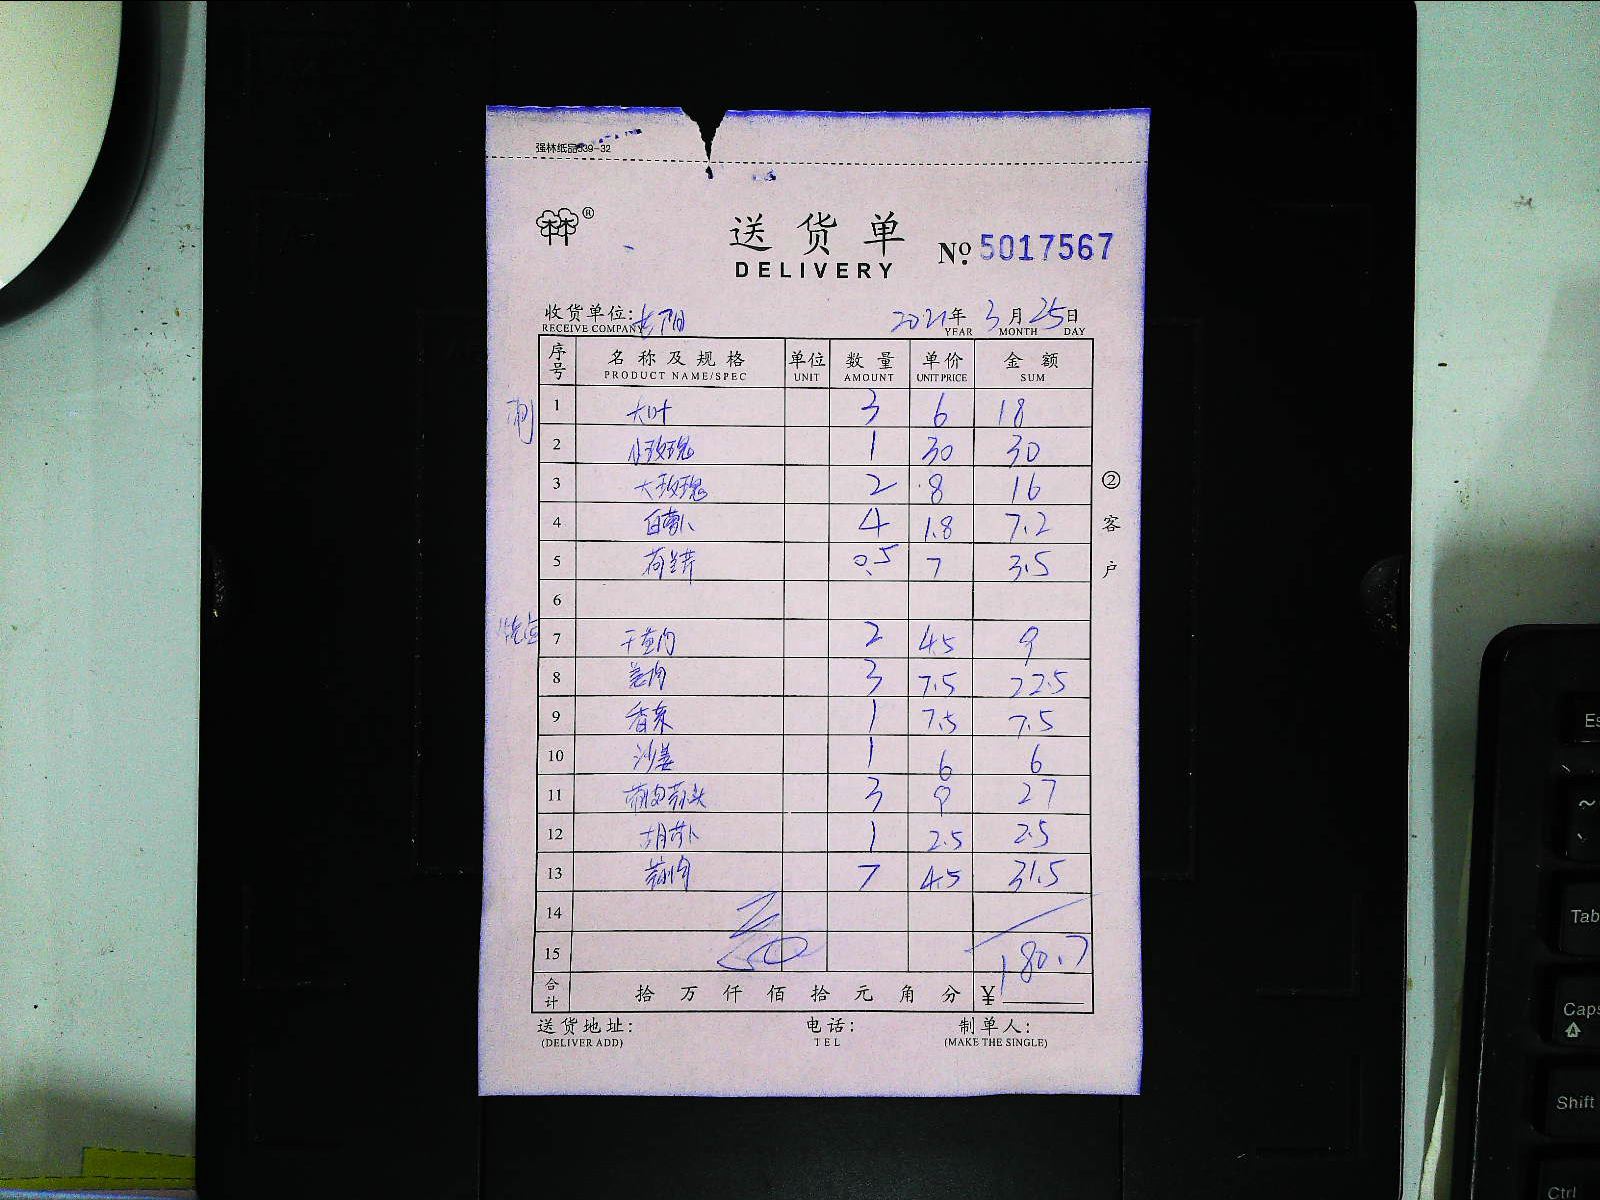 强林纸品539-32
送货单
DELIVERY
No. 5017567
收货单位: 长阳 2021年 3月 25日
RECEIVE COMPANY YEAR MONTH DAY
序号 名称及规格 单位 数量 单价 金额
PRODUCT NAME/SPEC UNIT AMOUNT UNIT PRICE SUM
1 大叶 3 6 18
2 小玫瑰 1 30 30
3 大玫瑰 2 8 16
4 白萝卜 4 1.8 7.2
5 荷兰芹 0.5 7 3.5
6
7 干葱肉 2 4.5 9
8 姜肉 3 7.5 22.5
9 香茅 1 7.5 7.5
10 沙姜 1 6 6
11 3 9 27
12 胡萝卜 1 2.5 2.5
13 7 4.5 31.5
14
15 180.7
合计 拾 万 仟 佰 拾 元 角 分 ¥
②客户
送货地址: 电话: 制单人:
(DELIVER ADD) TEL (MAKE THE SINGLE)
Es
~
Tab
Caps
Shift
Ctrl